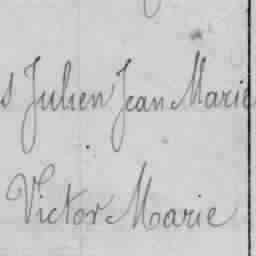 s Julien Jean Marie
Victor Marie